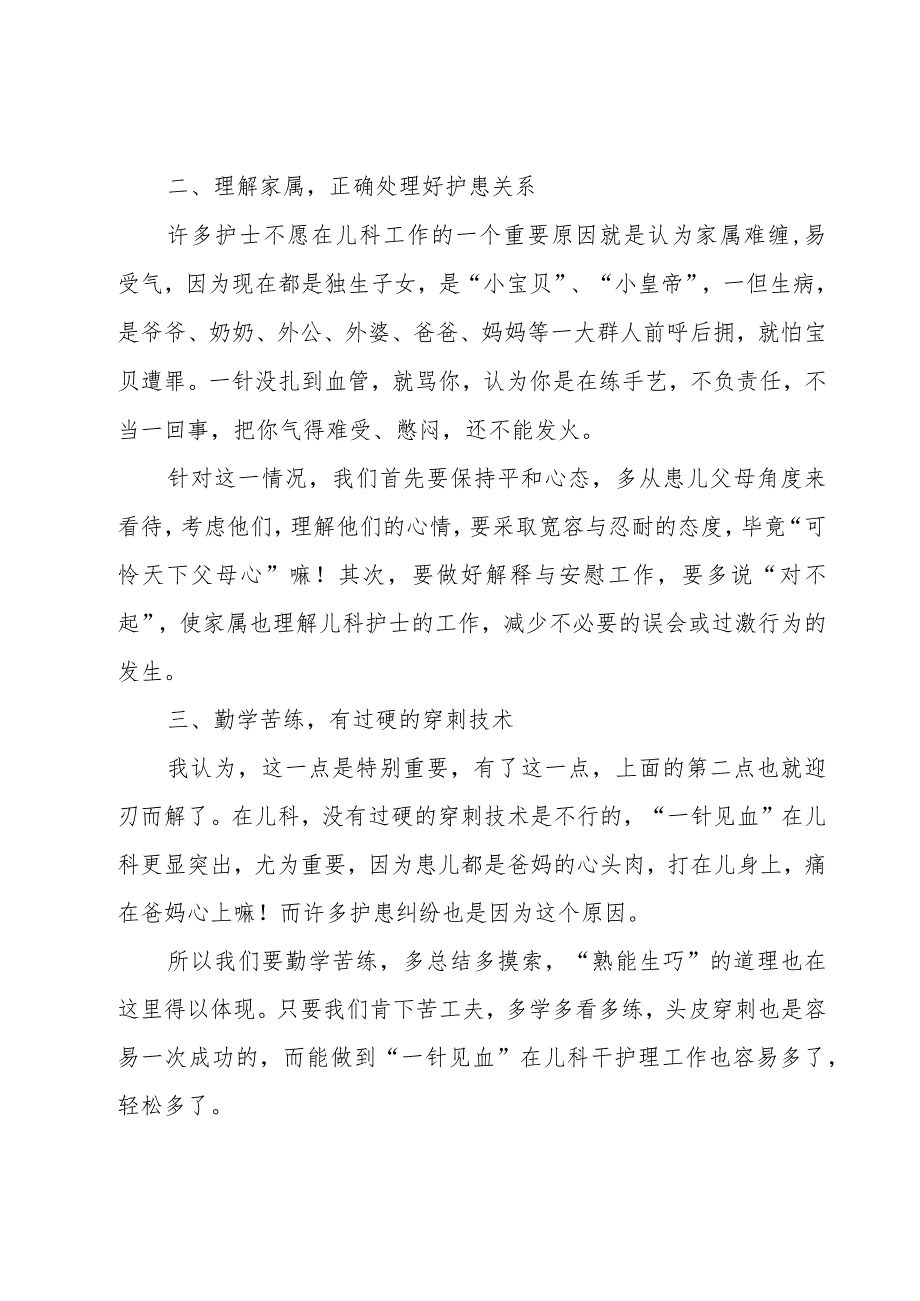 二、理解家属，正确处理好护患关系
许多护士不愿在儿科工作的一个重要原因就是认为家属难缠,易
受气，因为现在都是独生子女，是“小宝贝”、“小皇帝”，一但生病，
是爷爷、奶奶、外公、外婆、爸爸、妈妈等一大群人前呼后拥，就怕宝
贝遭罪。一针没扎到血管，就骂你，认为你是在练手艺，不负责任，不
当一回事，把你气得难受、憋闷，还不能发火。
针对这一情况，我们首先要保持平和心态，多从患儿父母角度来
看待，考虑他们，理解他们的心情，要采取宽容与忍耐的态度，毕竟“可
怜天下父母心”嘛！其次，要做好解释与安慰工作，要多说“对不
起”，使家属也理解儿科护士的工作，减少不必要的误会或过激行为的
发生。
三、勤学苦练，有过硬的穿刺技术
我认为，这一点是特别重要，有了这一点，上面的第二点也就迎
刃而解了。在儿科，没有过硬的穿刺技术是不行的，“一针见血”在儿
科更显突出，尤为重要，因为患儿都是爸妈的心头肉，打在儿身上，痛
在爸妈心上嘛！而许多护患纠纷也是因为这个原因。
所以我们要勤学苦练，多总结多摸索，“熟能生巧”的道理也在
这里得以体现。只要我们肯下苦工夫，多学多看多练，头皮穿刺也是容
易一次成功的，而能做到“一针见血”在儿科干护理工作也容易多了，
轻松多了。